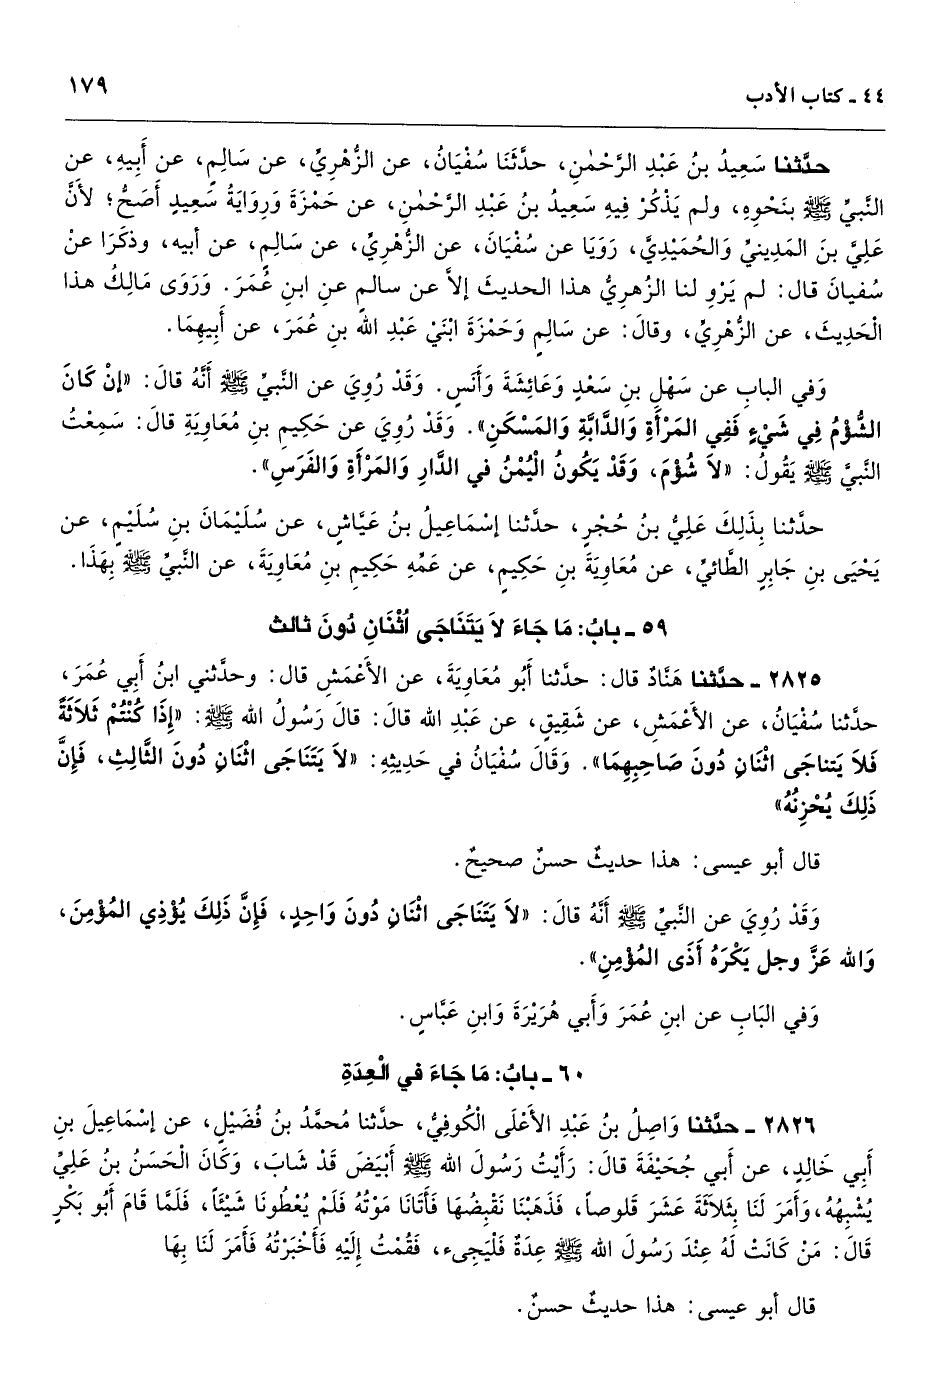 ٤٤ ـ كتاب الأدب
١٧٩
حدَّثنا سَعِيدُ بنُ عَبْدِ الرَّحْمٰنِ، حدَّثَنَا سُفْيَانُ، عن الزُّهْرِيِّ، عن سَالِمٍ، عن أَبِيهِ، عن
النَّبيِّ ﷺ بنَحْوِهِ، ولم يَذْكُرْ فِيهِ سَعِيدُ بنُ عَبْدِ الرَّحْمٰنِ، عن حَمْزَةَ وَرِوَايَةُ سَعِيدٍ أَصَحُّ؛ لأنَّ
عَلِيَّ بنَ المَدِينيِّ وَالحُمَيْدِيَّ، رَوَيَا عن سُفْيَانَ، عن الزُّهْرِيِّ، عن سَالِمٍ، عن أبيه، وذكَرَا عنْ
سُفيانَ قال: لم يَرْوِ لنا الزُهريُّ هذا الحديثَ إلاَّ عن سالمٍ عنِ ابنِ عُمَرَ. وَرَوَى مَالِكٌ هذا
الْحَدِيثَ، عن الزُّهْرِيِّ، وقالَ: عن سَالِمٍ وَحَمْزَةَ ابْنَيْ عَبْدِ الله بنِ عُمَرَ، عن أَبِيهِمَا.
وَفي الباب عن سَهْلِ بنِ سَعْدٍ وَعَائِشَةَ وَأَنَسٍ. وَقَدْ رُوِيَ عن النَّبيِّ ﷺ أَنَّهُ قالَ: «إنْ كَانَ
الشُّؤْمُ فِي شَيْءٍ فَفِي المَرْأَةِ وَالدَّابَّةِ وَالمَسْكَنِ». وَقَدْ رُوِيَ عن حَكِيمِ بنِ مُعَاوِيَةِ قالَ: سَمِعْتُ
النَّبيَّ ﷺ يَقُولُ: «لاَ شُؤْمَ، وَقَدْ يَكُونُ الْيُمْنُ في الدَّارِ وَالمَرْأَةِ وَالفَرَسِ».
حدَّثنا بِذَلِكَ عَلِيُّ بنُ حُجْرٍ، حدَّثنا إسْمَاعِيلُ بنُ عَيَّاشٍ، عن سُلَيْمَانَ بنِ سُلَيْمٍ، عن
يَحْيَى بنِ جَابِرٍ الطَّائيِّ، عن مُعَاوِيَةَ بنِ حَكِيمٍ، عن عَمِّهِ حَكِيمِ بنِ مُعَاوِيَةَ، عن النَّبيِّ ﷺ بِهَذَا.
٥٩ ـ بابُ: مَا جَاءَ لاَ يَتَنَاجَى اُثْنَانِ دُونَ ثالث
٢٨٢٥ ـ حدَّثنا هَنَّادٌ قال: حدَّثنا أَبُو مُعَاوِيَةَ، عن الأعْمَشِ قال: وحدَّثني ابنُ أَبي عُمَرَ،
حدَّثنا سُفْيَانُ، عن الأعْمَشِ، عن شَقِيقٍ، عن عَبْدِ الله قالَ: قالَ رَسُولُ الله ﷺ: «إِذَا كُنْتُمْ ثَلاَثَةً
فَلاَ يَتناجَى اثْنَانِ دُونَ صَاحِبِهِمَا». وَقَالَ سُفْيَانُ في حَدِيثِهِ: «لاَ يَتَنَاجَى اثْنَانِ دُونَ الثَّالِثِ، فَإِنَّ
ذَلِكَ يُحْزِنُهُ»
قال أبو عيسى: هذا حديثٌ حسنٌ صحيحٌ.
وَقَدْ رُوِيَ عن النَّبيِّ ﷺ أَنَّهُ قالَ: «لاَ يَتَنَاجَى اثْنَانِ دُونَ وَاحِدٍ، فَإِنَّ ذَلِكَ يُؤْذِي المُؤْمِنَ،
وَالله عَزَّ وجل يَكْرَهُ أَذَى المُؤْمِنِ».
وَفي البَابِ عن ابنِ عُمَرَ وَأَبي هُرَيْرَةَ وَابنِ عَبَّاسٍ.
٦٠ ـ بابُ: مَا جَاءَ في الْعِدَةِ
٢٨٢٦ ـ حدَّثنا وَاصِلُ بنُ عَبْدِ الأعْلَى الْكُوفِيُّ، حدَّثنا مُحمَّدُ بنُ فُضَيْلٍ، عن إسْمَاعِيلَ بنِ
أبي خَالِدٍ، عن أبي جُحَيْفَةَ قالَ: رَأَيْتُ رَسُولَ الله ﷺ أَبْيَضَ قَدْ شَابَ، وَكَانَ الْحَسَنُ بنُ عَلِيٍّ
يُشْبِهُهُ، وَأَمَرَ لَنَا بِثَلاَثَةَ عَشَرَ قَلوصاً، فَذَهَبْنَا نَقْبِضُهَا فَأَتَانَا مَوْتُهُ فَلَمْ يُعْطُونَا شَيْئَاً، فَلَمَّا قَامَ أَبُو بَكْرٍ
قَالَ: مَنْ كَانَتْ لَهُ عِنْدَ رَسُولَ الله ﷺ عِدَةٌ فَلْيَجِىء، فَقُمْتُ إلَيْهِ فَأَخْبَرْتُهُ فَأَمَرَ لَنَا بِهَا
قال أبو عيسى: هذا حديثٌ حسنٌ.